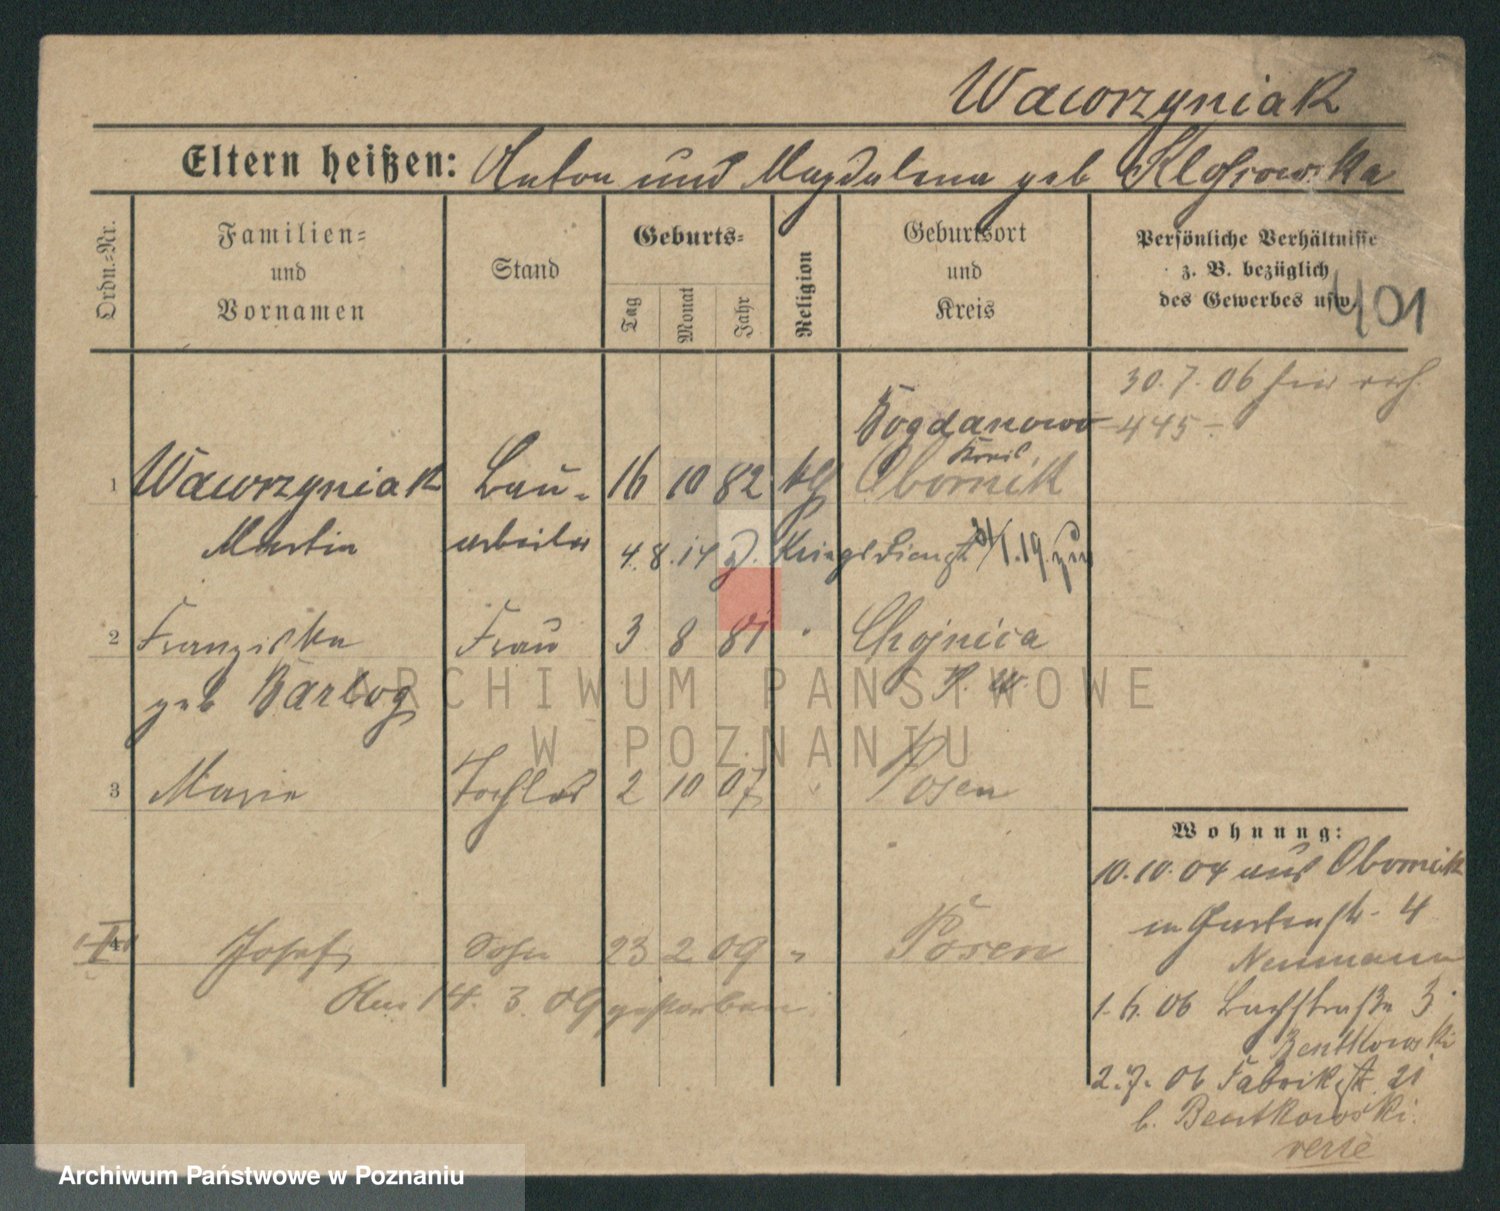 Wawrzyniak
Eltern heißen: Anton und Magdalena geb Klossowska
Ordn.-Nr.
Familien-
und
Vornamen
Stand
Geburts-
Tag
Monat
Jahr
Religion
Geburtsort
und
Kreis
Persönliche Verhältnisse
z. B. bezüglich
des Gewerbes usw.
401
30. 7. 06
Bogdanowo
445 -
1 Wawrzyniak Bau- 16 10 82 Obornik
Martin arbeiter 4. 8. 14 z. Kriegsdienst 31/1. 19. zur
2 Franziska Frau 3 8 81 " Chojnica
geb Bartog P. W.
3 Marie Tochter 2 10 07 " Posen
Wohnung:
10. 10. 04 aus Obornik
in Gartenstr. 4
Neumann
4 Josef Sohn 23 2 09 " Posen
Am 14. 3. 09 gestorben
1. 6. 06 Bachstraße 3
Bentkowski
2. 7. 06 Fabrikstr. 21
b. Bentkowski.
verte
ARCHIWUM PAŃSTWOWE
W POZNANIU
Archiwum Państwowe w Poznaniu